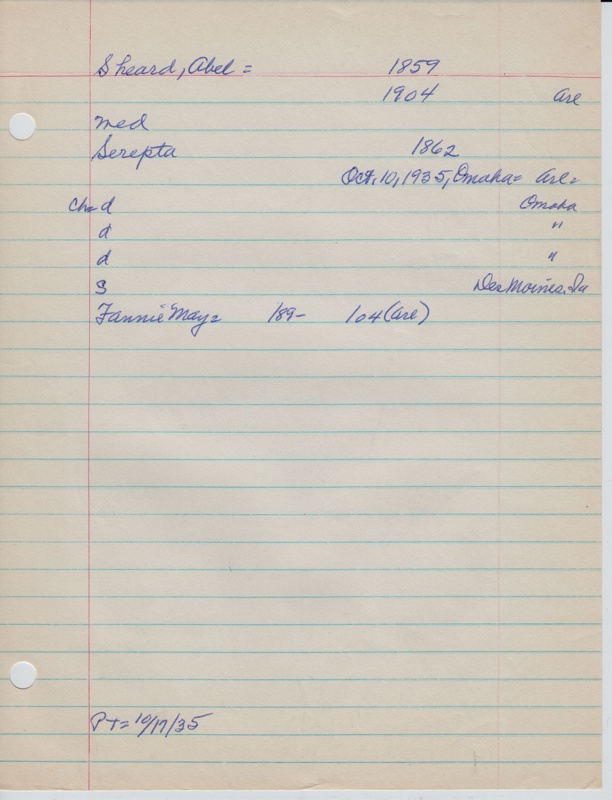 Sheard, Abel = 1859
1904 Are
med
Serepta 1862
Oct, 10, 1935, Omaha = Are =
Ch = d Omaha
d "
d "
S Des Moines. Ia
Fannie May = 189- 104 (Are)
PT = 10/17/35